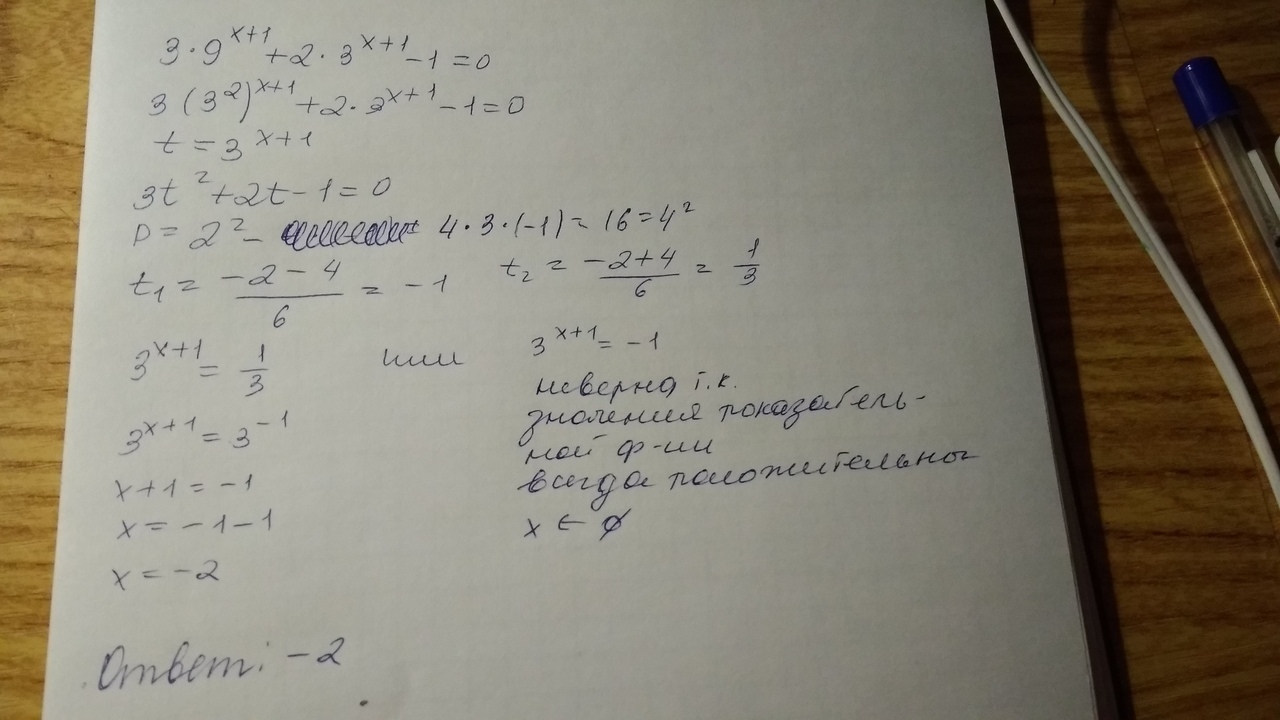 3·9^{x+1}+2·3^{x+1}-1=0
3(3^2)^{x+1}+2·3^{x+1}-1=0
t=3^{x+1}
3t^2+2t-1=0
D=2^2- 4·3·(-1)=16=4^2
t_1=\frac{-2-4}{6}=-1 t_2=\frac{-2+4}{6}=\frac{1}{3}
3^{x+1}=\frac{1}{3} или 3^{x+1}=-1
3^{x+1}=3^{-1} неверно т.к.
значения показатель-
ной ф-ии
x+1=-1 всегда положительны
x=-1-1 x∈∅
x=-2
Ответ: -2